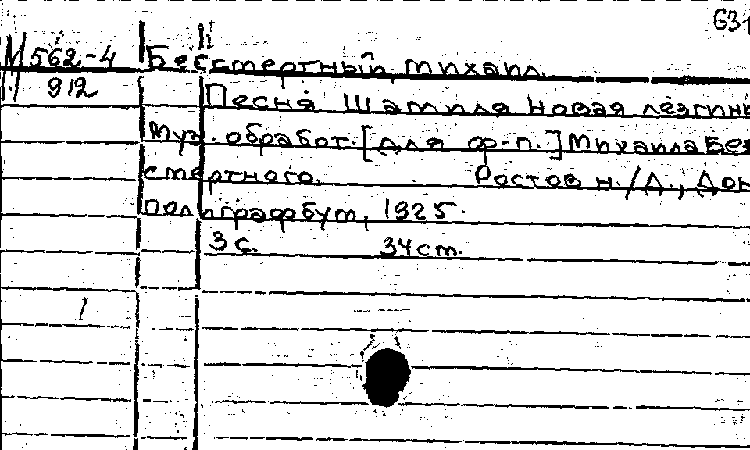 631
М 562-4 Бессмертный, Михаил.
912 Песня Шамиля Новая лезгин
Муз. обработ. [для ф-п.] Михаила Бес
смертного. Ростов н/Д., Дон
полиграфбум, 1925.
3 с. 34 см.
1